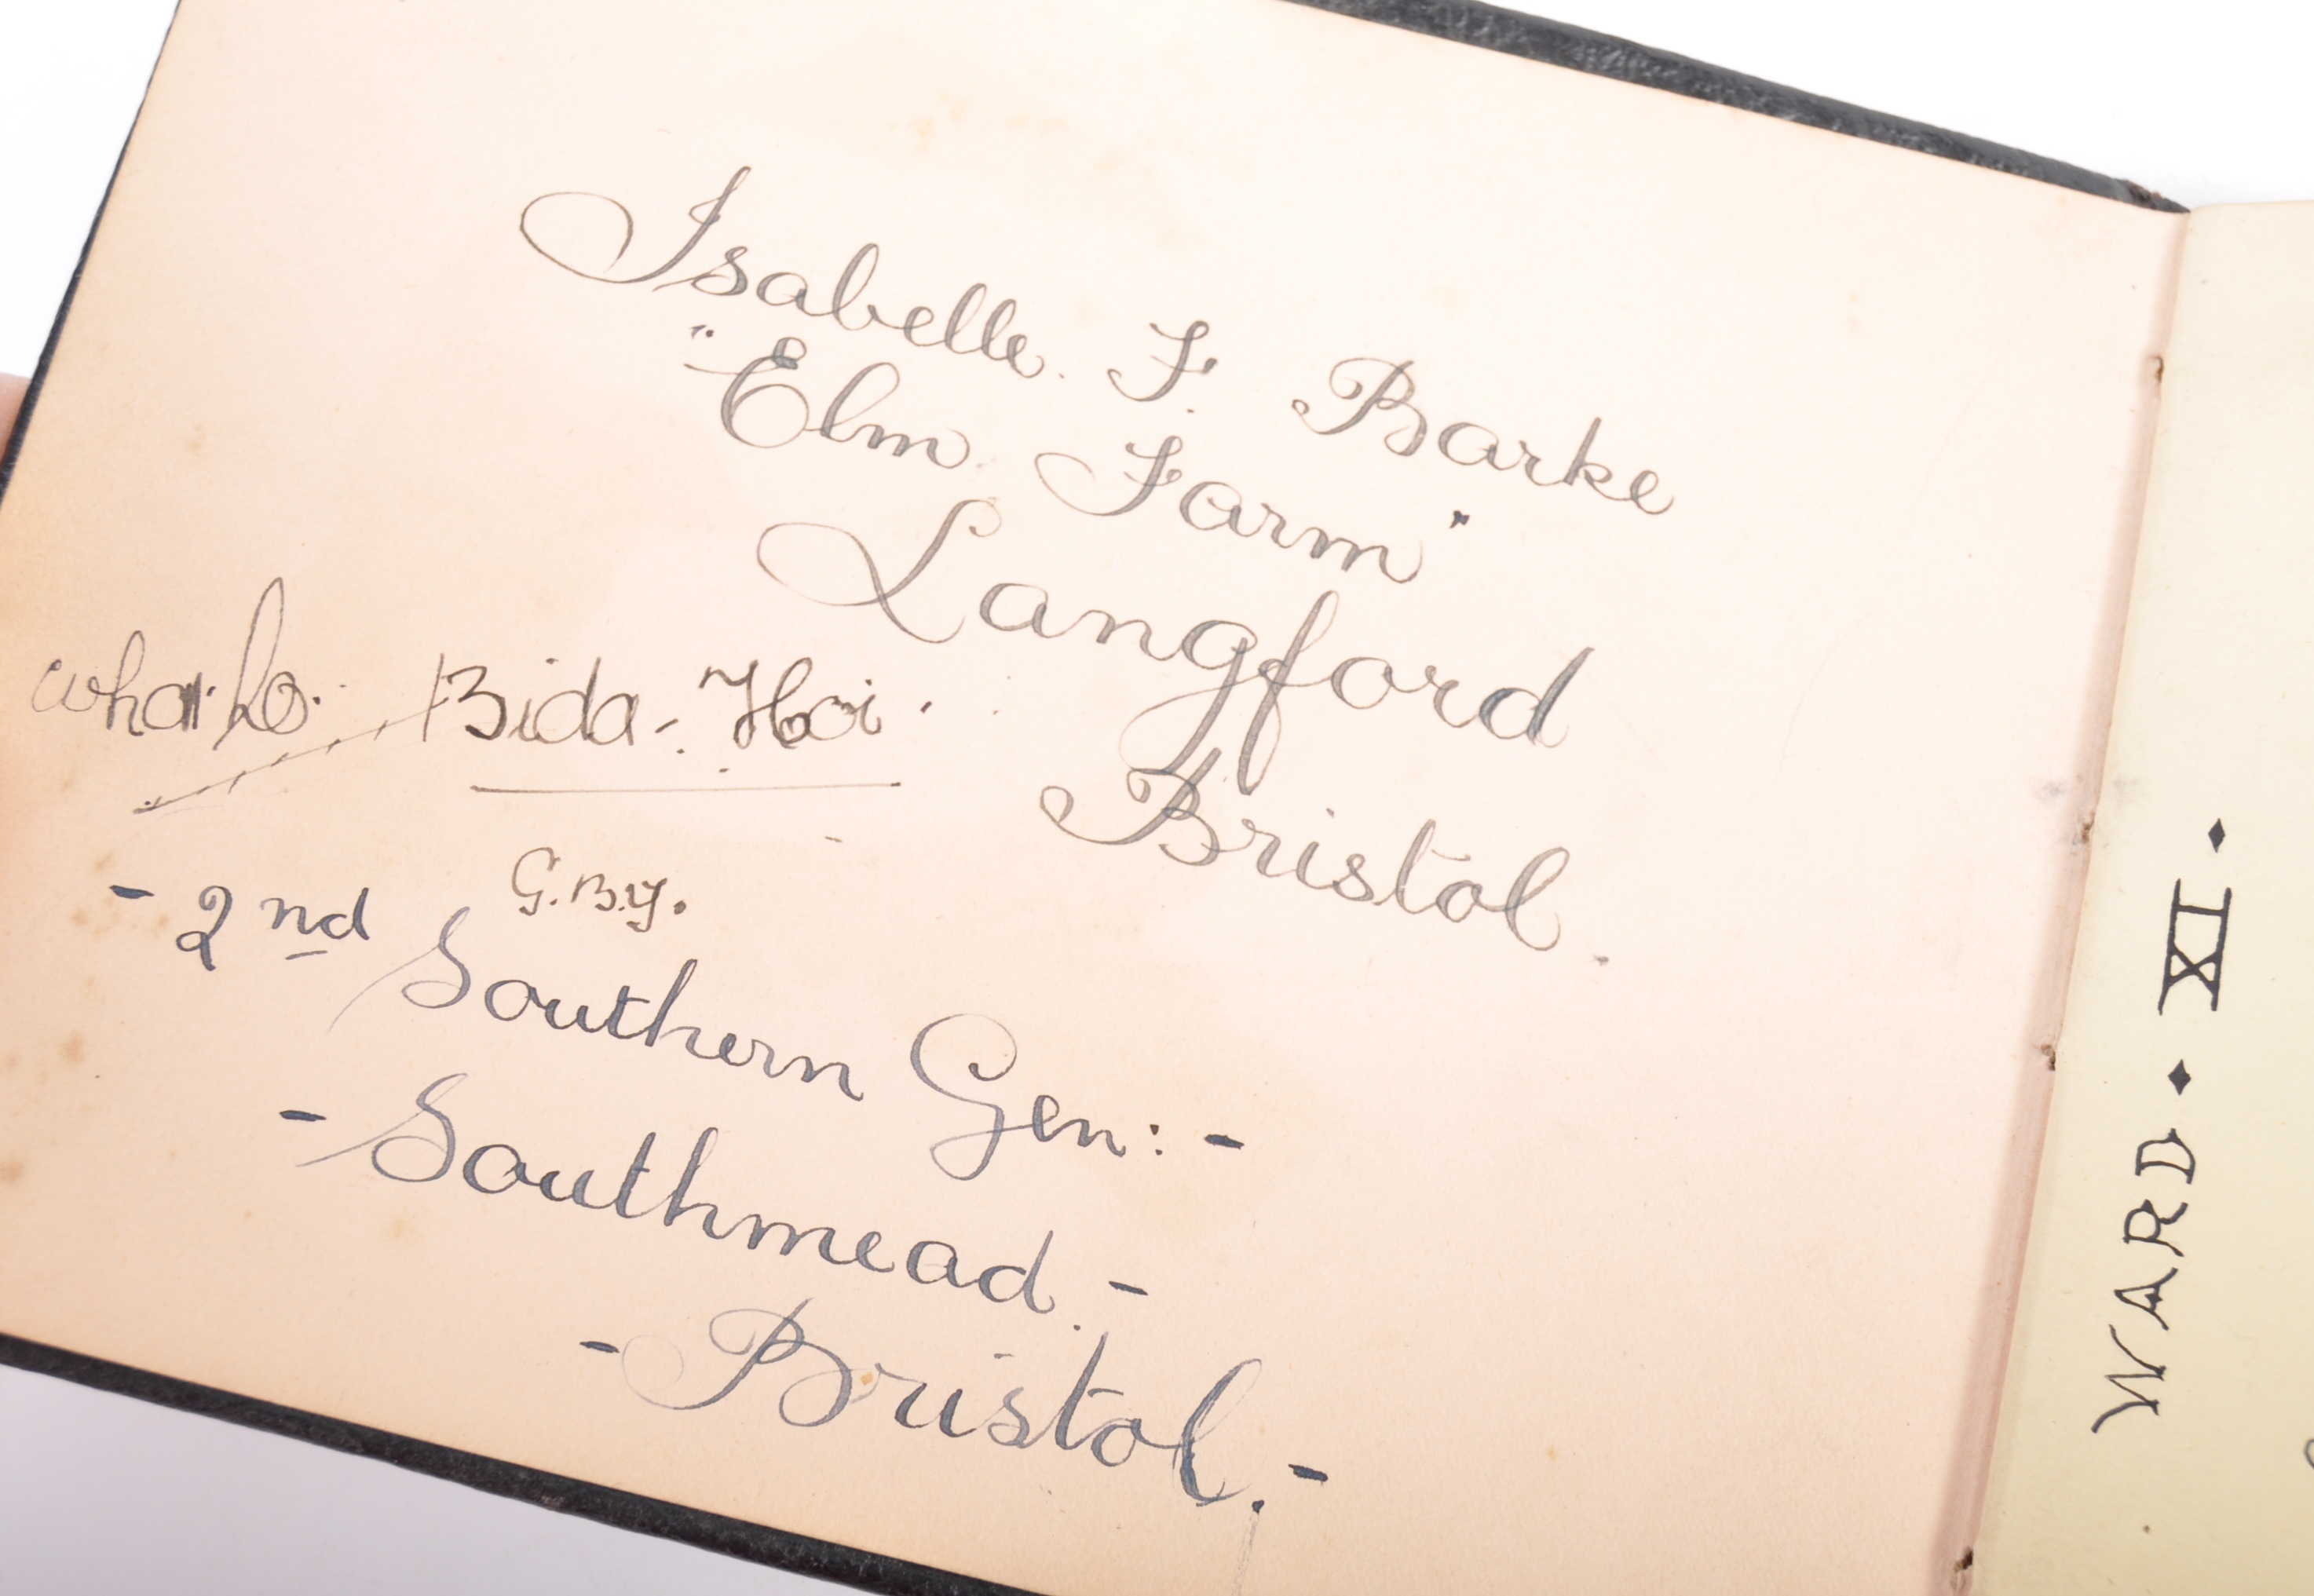 Isabelle. F. Barke
"Elm Farm"
Langford
Bristol.
Bida-Hoi.
G.B.Y.
- 2nd Southern Gen: -
- Southmead. -
- Bristol. -
WARD • XI •